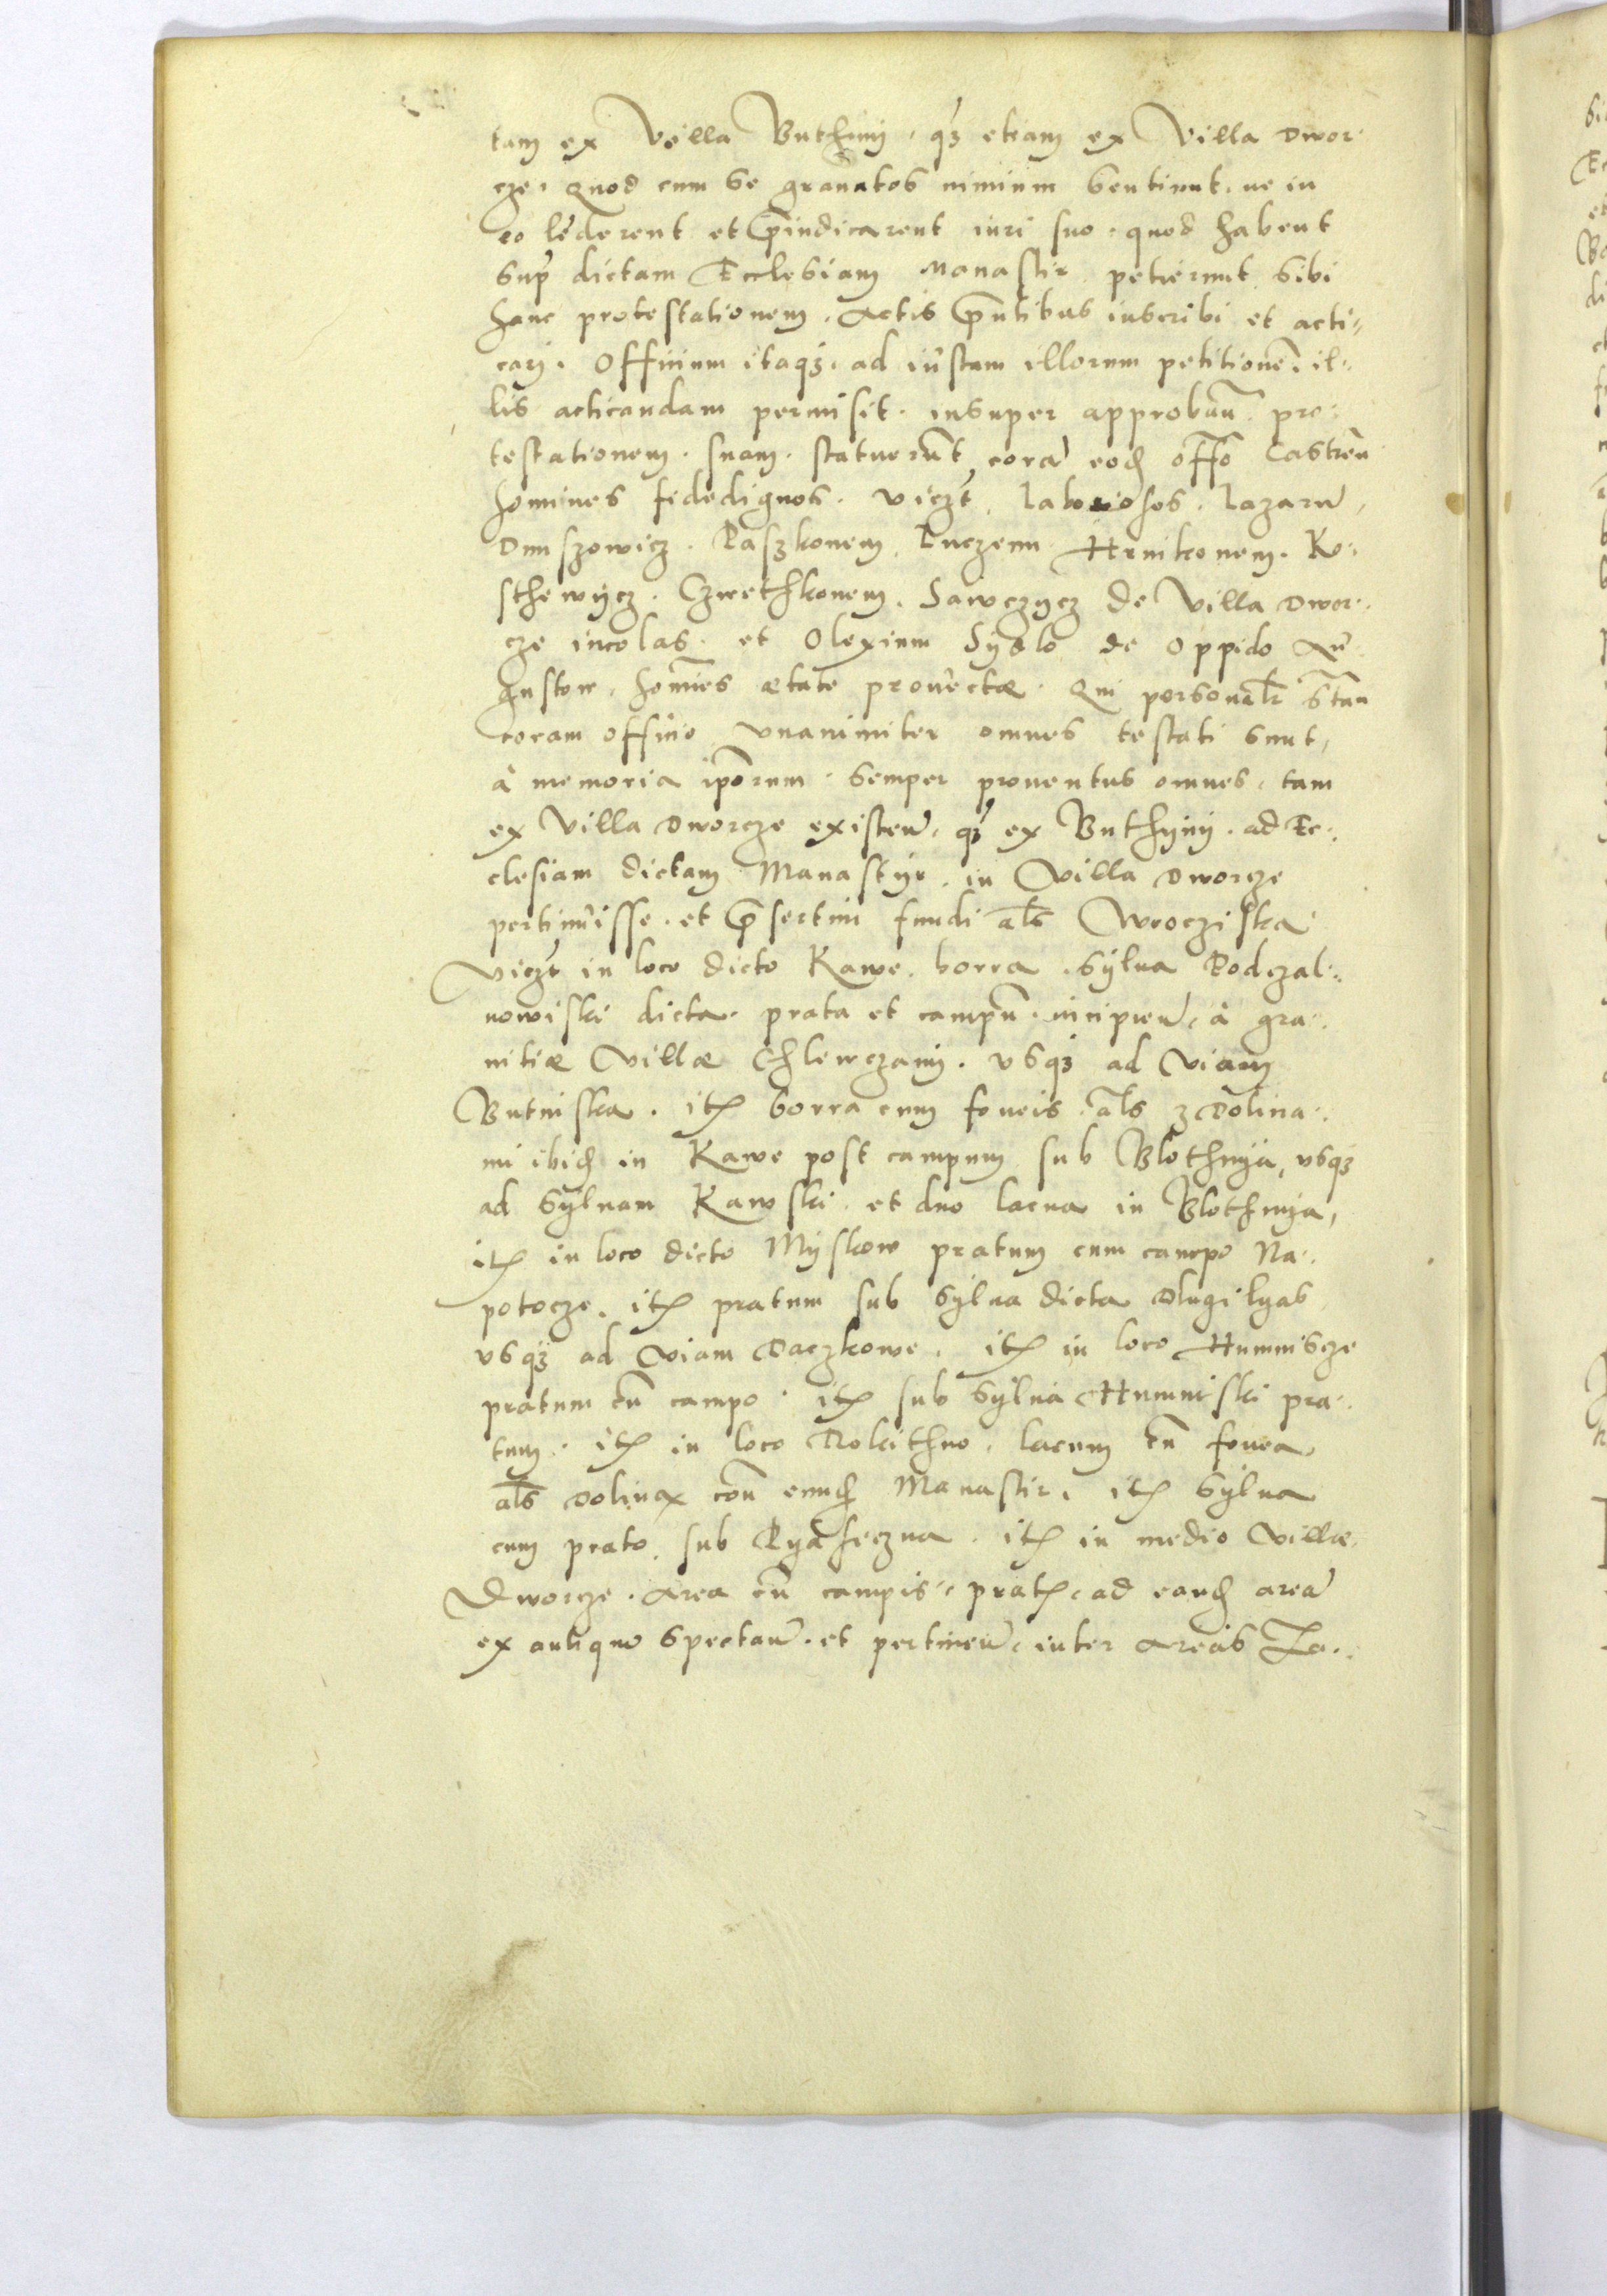 tam ex Villa Buthinij, q̃ꝫ etiam ex Villa Dwor-
cze. Quod cum se gravatos nimium sentiunt, ne in
eo lederent et p̃iudicarent iuri suo, quod habent
sup̃ dictam Ecclesiam Monastir petierunt sibi
hanc protestationem. Actis p̃ntibus inscribi et acti-
cari. Officium itaqꝫ ad iustam illorum petitionẽ il-
lis acticandam permisit. insuper approbãn. pro-
testationem. suam. statuerũt corã eodẽ offõ Castreñ
homines fidedignos. viczt. laboriosos. lazarũ,
Duuszowicz. Paszkonem, Luczenu Hrnikonem. Ko-
sthewycz. Czwethkonem, Sawczycz de Villa Dwor-
cze incolas. et Olexium Syslo de oppido Au-
gustow, homĩes ætate provectæ. Qui personalr̃ stan̄
coram officio unanimiter omnes testati sunt,
à memoria ip̃orum. semper proventus omnes, tam
ex Villa Dworcze existeñ, q̃ꝫ ex Buthyny. ad Ec-
clesiam dictam Manastyr. in Villa Dworcze
pertinuisse. et p̃sertim fundi al̃s Wroczyska
Viczt in loco dicto Kawe. borra. sylva Podczal-
nowiski dicta. prata et campũ. incipieñ, à gra-
nitiæ Villæ Chlewczany. usqꝫ ad Viam
Butniska. itẽ borra cum foveis al̃s z Dolina-
mi ibidẽ in Kawe post campum sub Blothnya, usqꝫ
ad sylvam Kawski. et duo lacua in Blothnya,
itẽ in loco dicto Myskow pratum cum campo Na-
potocze. itẽ pratum sub sylva dicta Dlugi lyas
usqꝫ ad Viam Daczkowe. itẽ in loco Humniscze
pratum cũ campo. itẽ sub sylva Humniski pra-
tum. itẽ in loco Rokithno. lacum cũ fovea
al̃s Dolina coñ eundẽ Manastir. itẽ sylva
cum prato sub Ryasieczna. itẽ in medio Villæ
Dworcze. Area cũ campis, pratẽ, ad eandẽ areã
ex antiquo spectañ. et pertineñ, inter areas La-